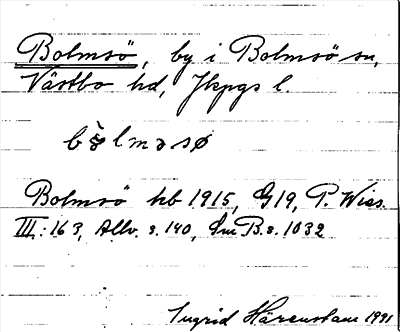 Bolmsö, by i Bolmsö sn,
Västbo hd, Jkpgs l.
Bolmsö hb 1915, G19, P. Wies.
III: 163, Allv. s. 140, Sm B. s. 1032
Ingrid Härenstam 1991